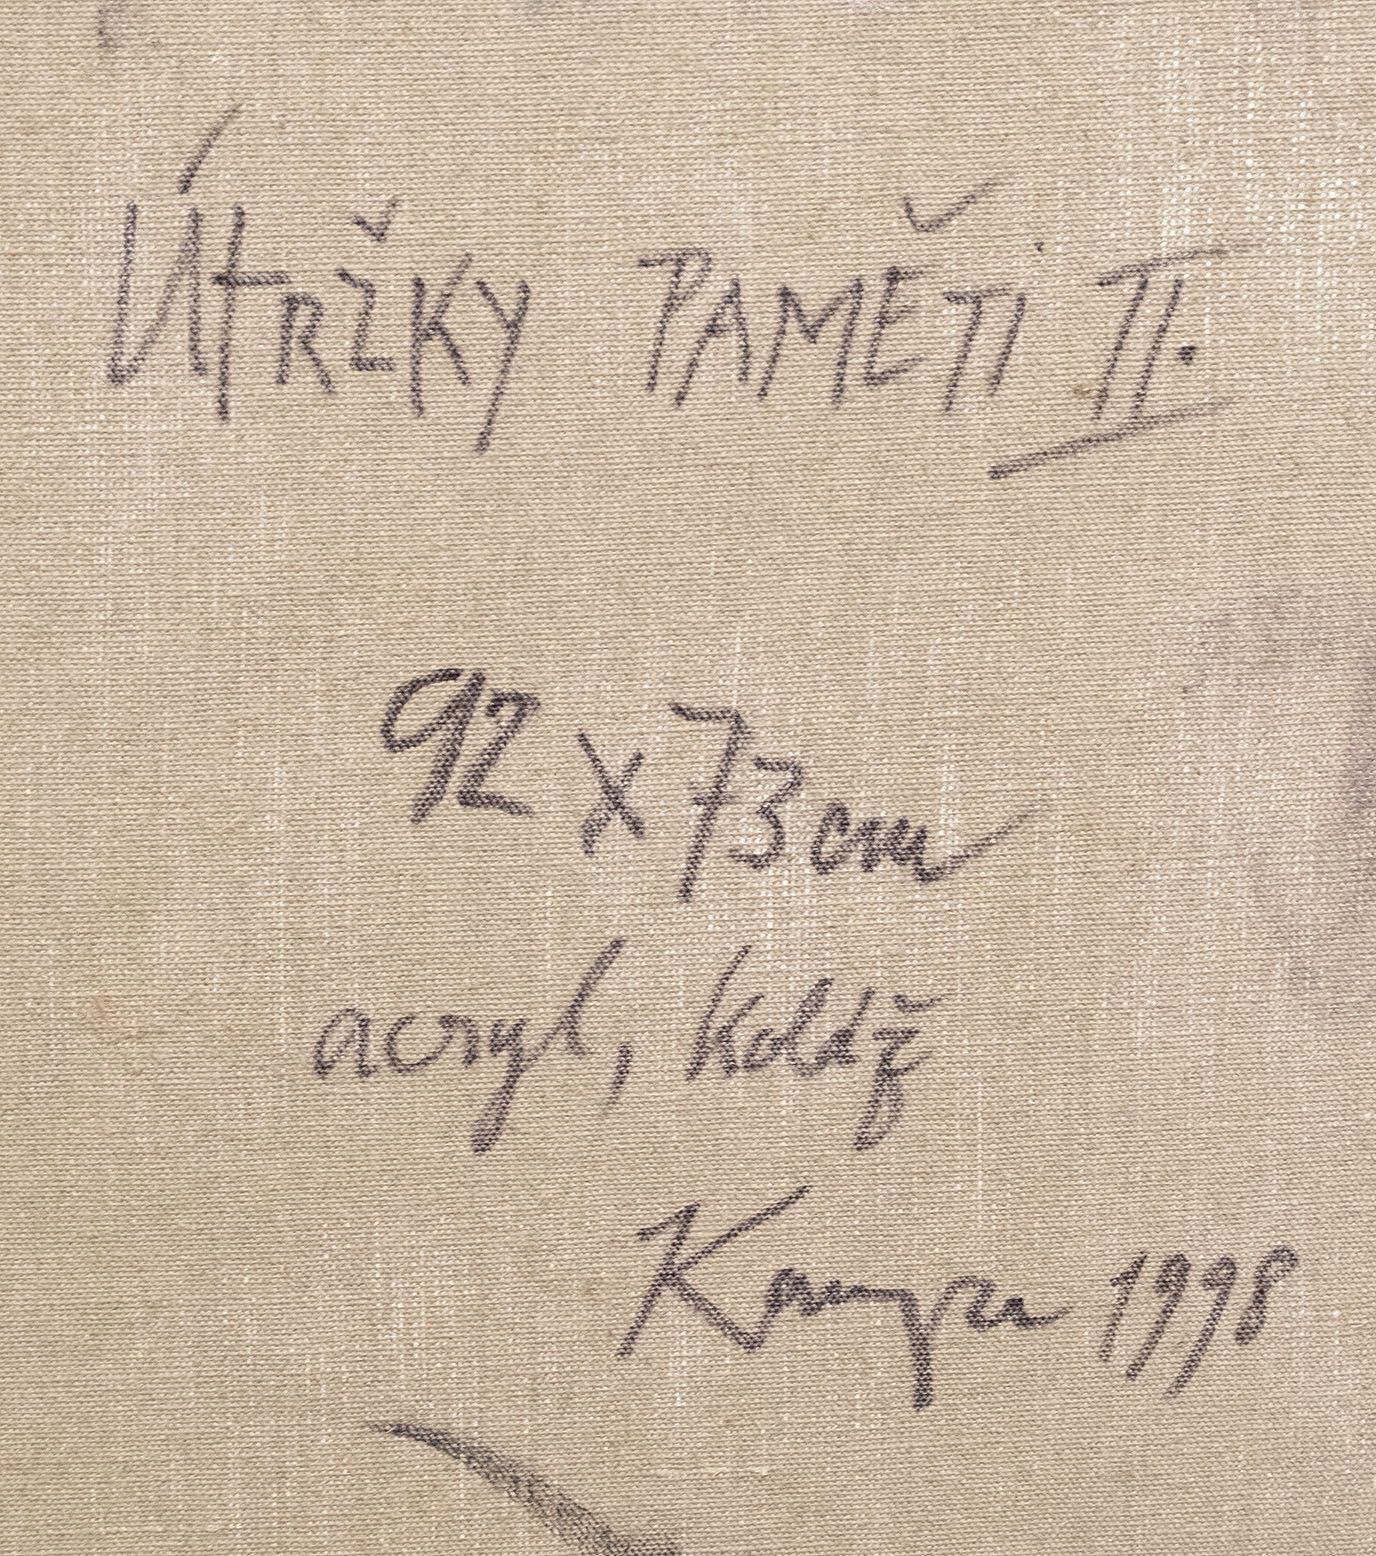 ÚTRŽKY PAMĚTI II.
92 x 73 cm
acryl, koláž
Kampa 1998